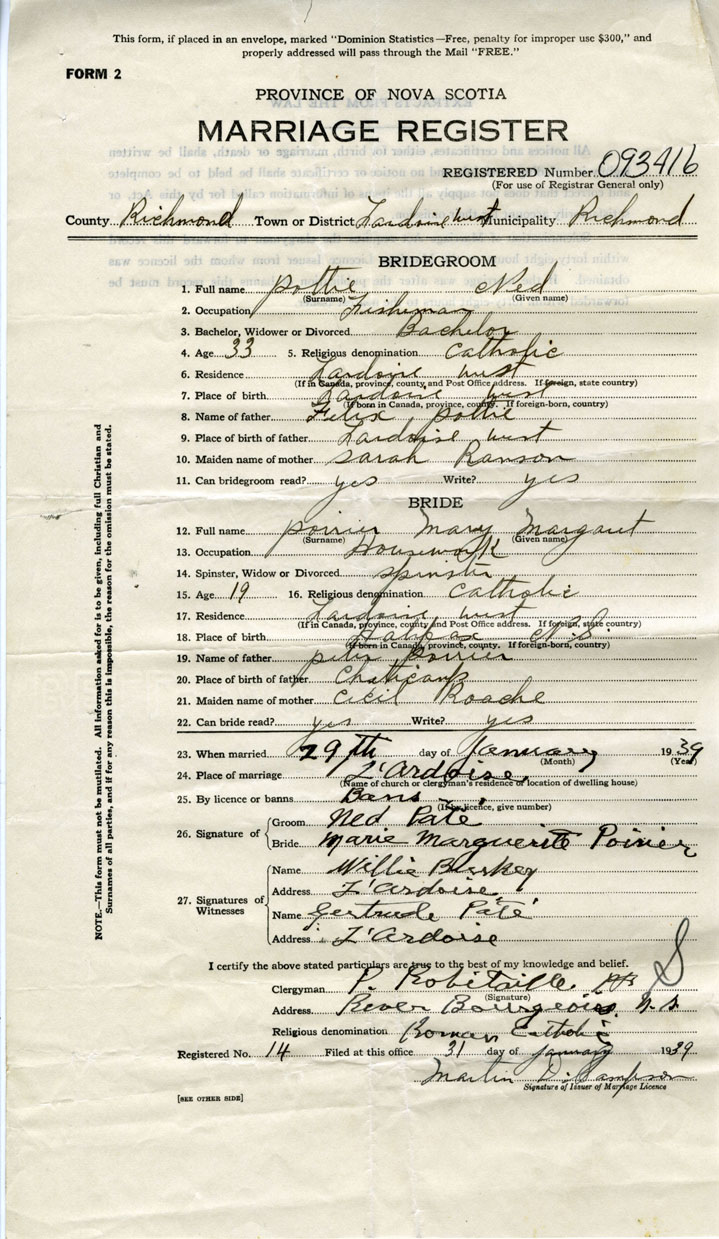 This form, if placed in an envelope, marked "Dominion Statistics—Free, penalty for improper use $300," and
properly addressed will pass through the Mail "FREE."
FORM 2
PROVINCE OF NOVA SCOTIA
MARRIAGE REGISTER
REGISTERED Number 093416
(For use of Registrar General only)
County Richmond Town or District Lardoise west Municipality Richmond
BRIDEGROOM
1. Full name Pottie Ned
(Surname) (Given name)
2. Occupation Fisherman
3. Bachelor, Widower or Divorced Bachelor
4. Age 33 5. Religious denomination Catholic
6. Residence Lardoise west
(If in Canada, province, county and Post Office address. If foreign, state country)
7. Place of birth Lardoise west
(If born in Canada, province, county. If foreign-born, country)
8. Name of father Felix Pottie
9. Place of birth of father Lardoise west
10. Maiden name of mother Sarah Ranson
11. Can bridegroom read? yes Write? yes
BRIDE
12. Full name Poirier Mary Margaut
(Surname) (Given name)
13. Occupation Housework
14. Spinster, Widow or Divorced Spinster
15. Age 19 16. Religious denomination Catholic
17. Residence Lardoise west
(If in Canada, province, county and Post Office address. If foreign, state country)
18. Place of birth Halifax N.S.
(If born in Canada, province, county. If foreign-born, country)
19. Name of father Peter Poirier
20. Place of birth of father
21. Maiden name of mother Cecil Roache
22. Can bride read? yes Write? yes
23. When married 29th day of January 1939
(Month) (Year)
24. Place of marriage L'Ardoise
(Name of church or clergyman's residence or location of dwelling house)
25. By licence or banns Bans
(If by licence, give number)
26. Signature of
Groom Ned Paté
Bride Marie Marguerite Poirier
27. Signatures of Witnesses
Name Willie Burkey
Address L'Ardoise
Name Gertrude Paté
Address L'Ardoise
I certify the above stated particulars are true to the best of my knowledge and belief.
Clergyman P. Robitaille
(Signature)
Address River Bourgeois, N.S
Religious denomination Roman Catholic
Registered No. 14 Filed at this office 31 day of January 1939
Martin D. Sampson
Signature of Issuer of Marriage Licence
[SEE OTHER SIDE]
NOTE.—This form must not be mutilated. All information asked for is to be given, including full Christian and
Surnames of all parties, and if for any reason this is impossible, the reason for the omission must be stated.